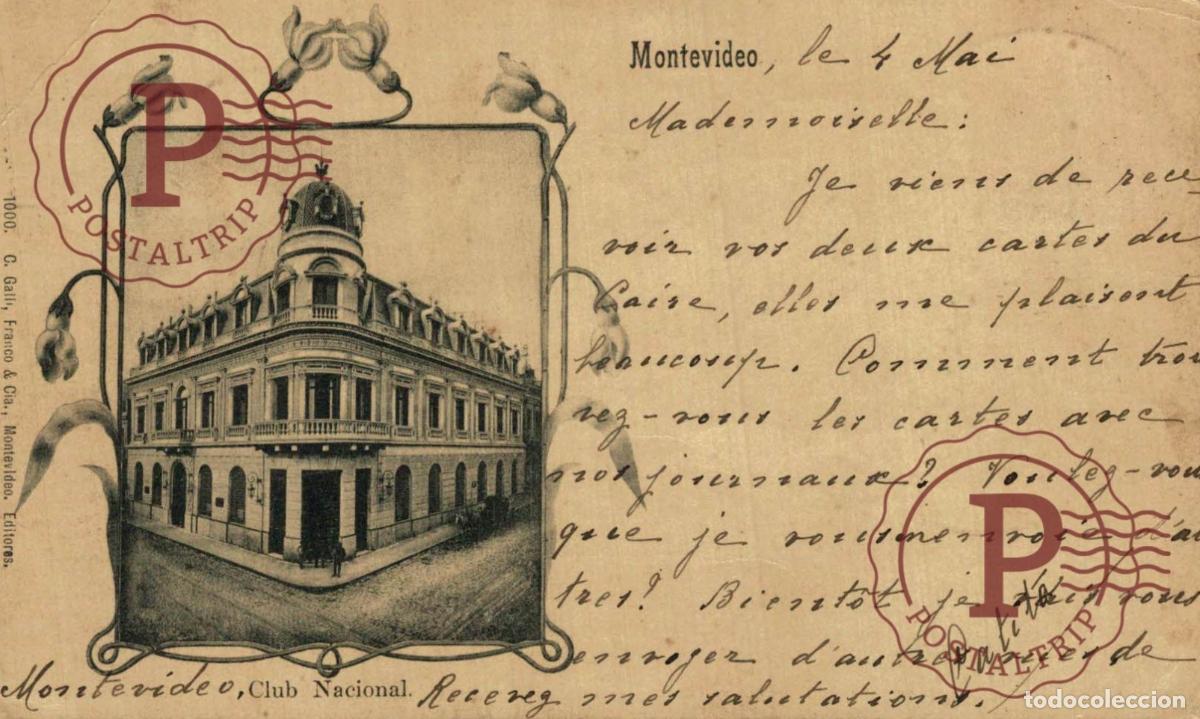 Montevideo, le 4 Mai
Mademoiselle:
Je viens de rece-
voir vos deux cartes du
Caire, elles me plaisent
beaucoup. Comment trou
vez-vous les cartes avec
nos journaux? Voulez-vous
que je vous en envoie d'au
tres? Bientôt je vais vous
envoyer d'autres de
Montevideo, Recevez mes salutations.
Club Nacional.
1000. C. Galli, Franco & Cia., Montevideo. Editores.
P
POSTALTRIP
P
POSTALTRIP
todocoleccion